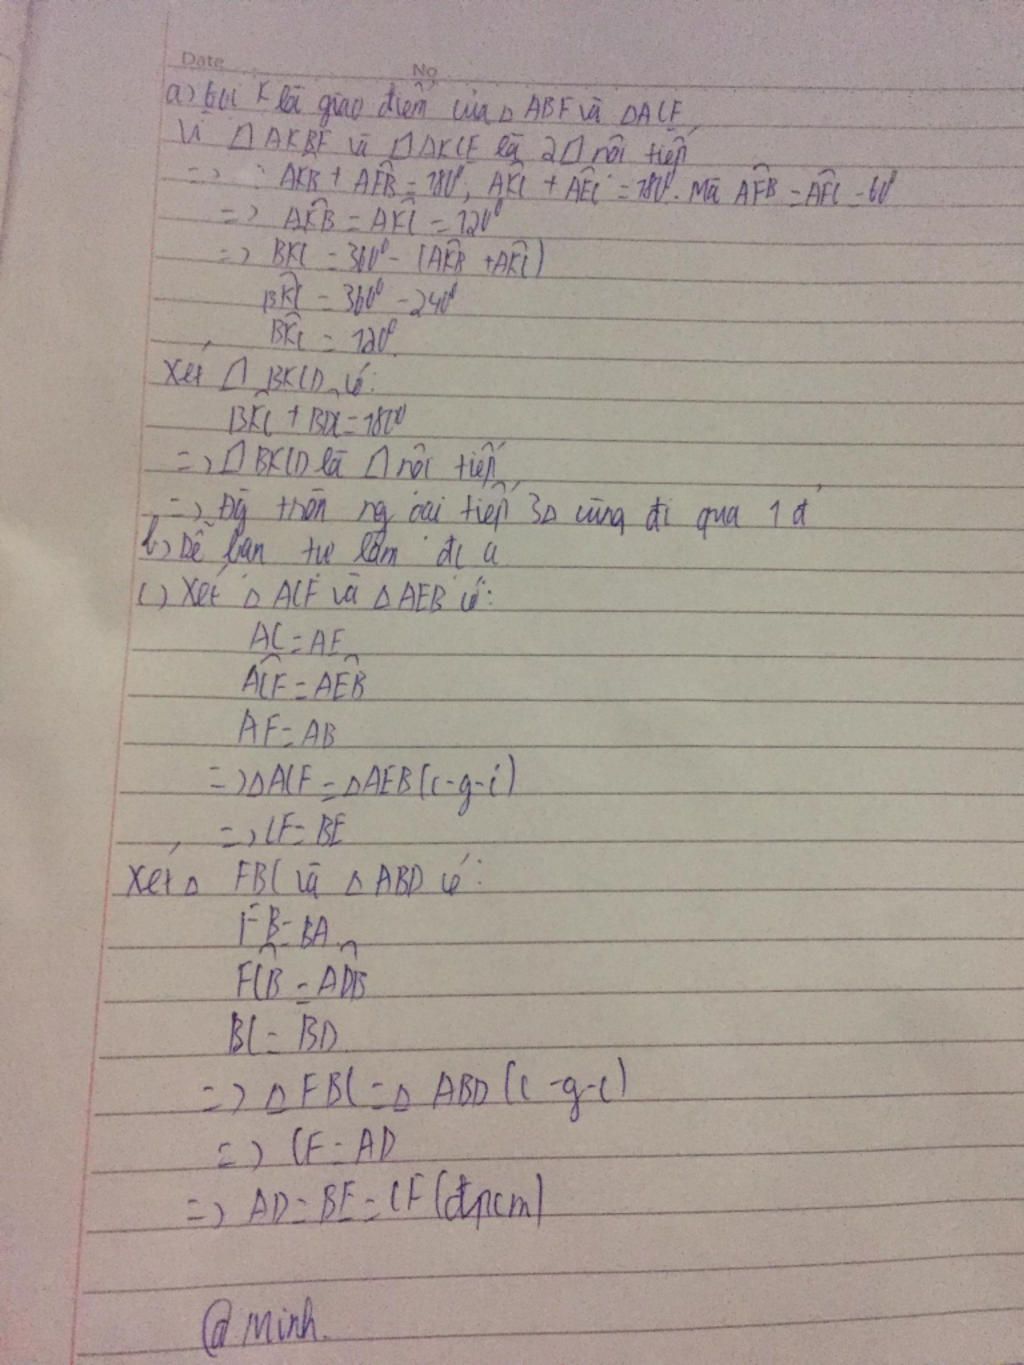 Date No
a) Gọi K là giao điểm của △ ABF và △ACE
Vì □ AKBF và □ AKCE là 2□ nội tiếp
=> AKB + AFB = 180⁰; AKC + AEC = 180⁰. Mà AFB = AEC = 60⁰
=> AKB = AKC = 120⁰
=> BKC = 360⁰ - (AKB + AKC)
BKC = 360⁰ - 240⁰
BKC = 120⁰
Xét □ BKCD có:
BKC + BDC = 180⁰
=> □ BKCD là □ nội tiếp
=> Đg tròn ng oại tiếp 3△ cùng đi qua 1 đ
b) Dễ bạn tự làm đi ạ
c) Xét △ ACF và △ AEB có:
AC = AE
ACF = AEB
AF = AB
=> △ACF = △AEB (c-g-c)
=> CF = BE
Xét △ FBC và △ ABD có:
FB = BA
FCB = ADB
BC = BD
=> △ FBC = △ ABD (c-g-c)
=> CF = AD
=> AD = BE = CF (đpcm)
@ Minh.